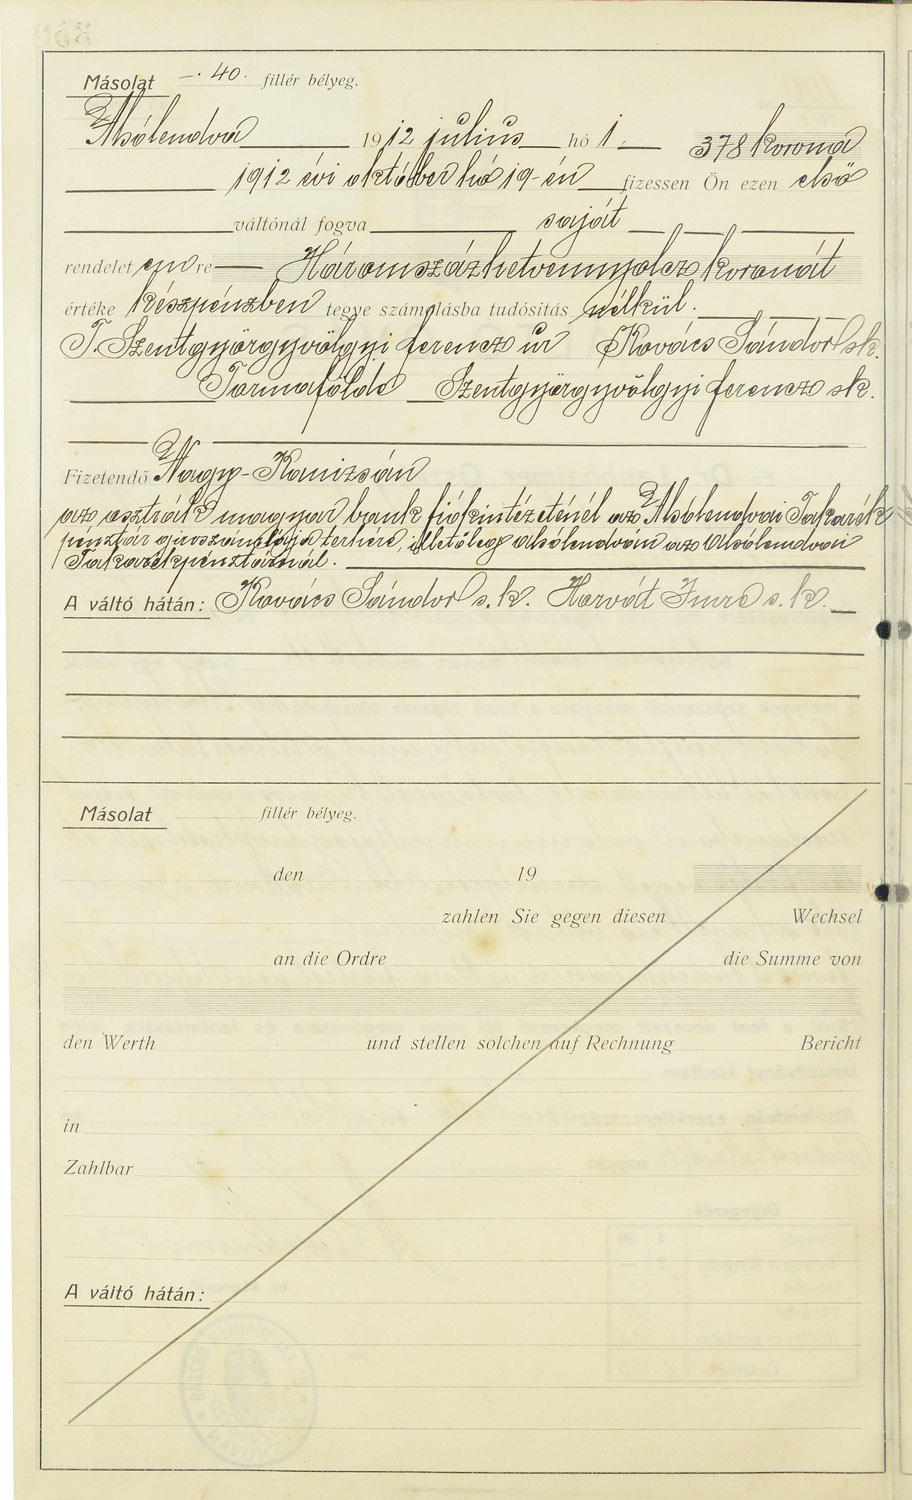 Másolat —.40. fillér bélyeg.
Alsólendva 1912 július hó 1. 378 korona
1912 évi október hó 19-én fizessen Ön ezen első
váltónál fogva saját
rendelet emre Háromszázhetvennyolcz koronát
értéke készpénzben tegye számolásba tudósitás nélkül.
T. Szentgyörgyvölgyi ferencz úr Kovács Sándor sk.
Tormafölde Szentgyörgyvölgyi ferencz sk.
Fizetendő Nagy-Kanizsán
az osztrák magyar bank fiókintézeténél az Alsólendvai Takarék
pénztár giroszámlája terhére, illetőleg Alsólendván az Alsólendvai
Takarékpénztárnál.
A váltó hátán: Kovács Sándor s.k. Horvát Imre s.k.
Másolat fillér bélyeg.
den 19
zahlen Sie gegen diesen Wechsel
an die Ordre die Summe von
den Werth und stellen solchen auf Rechnung Bericht
in
Zahlbar
A váltó hátán: